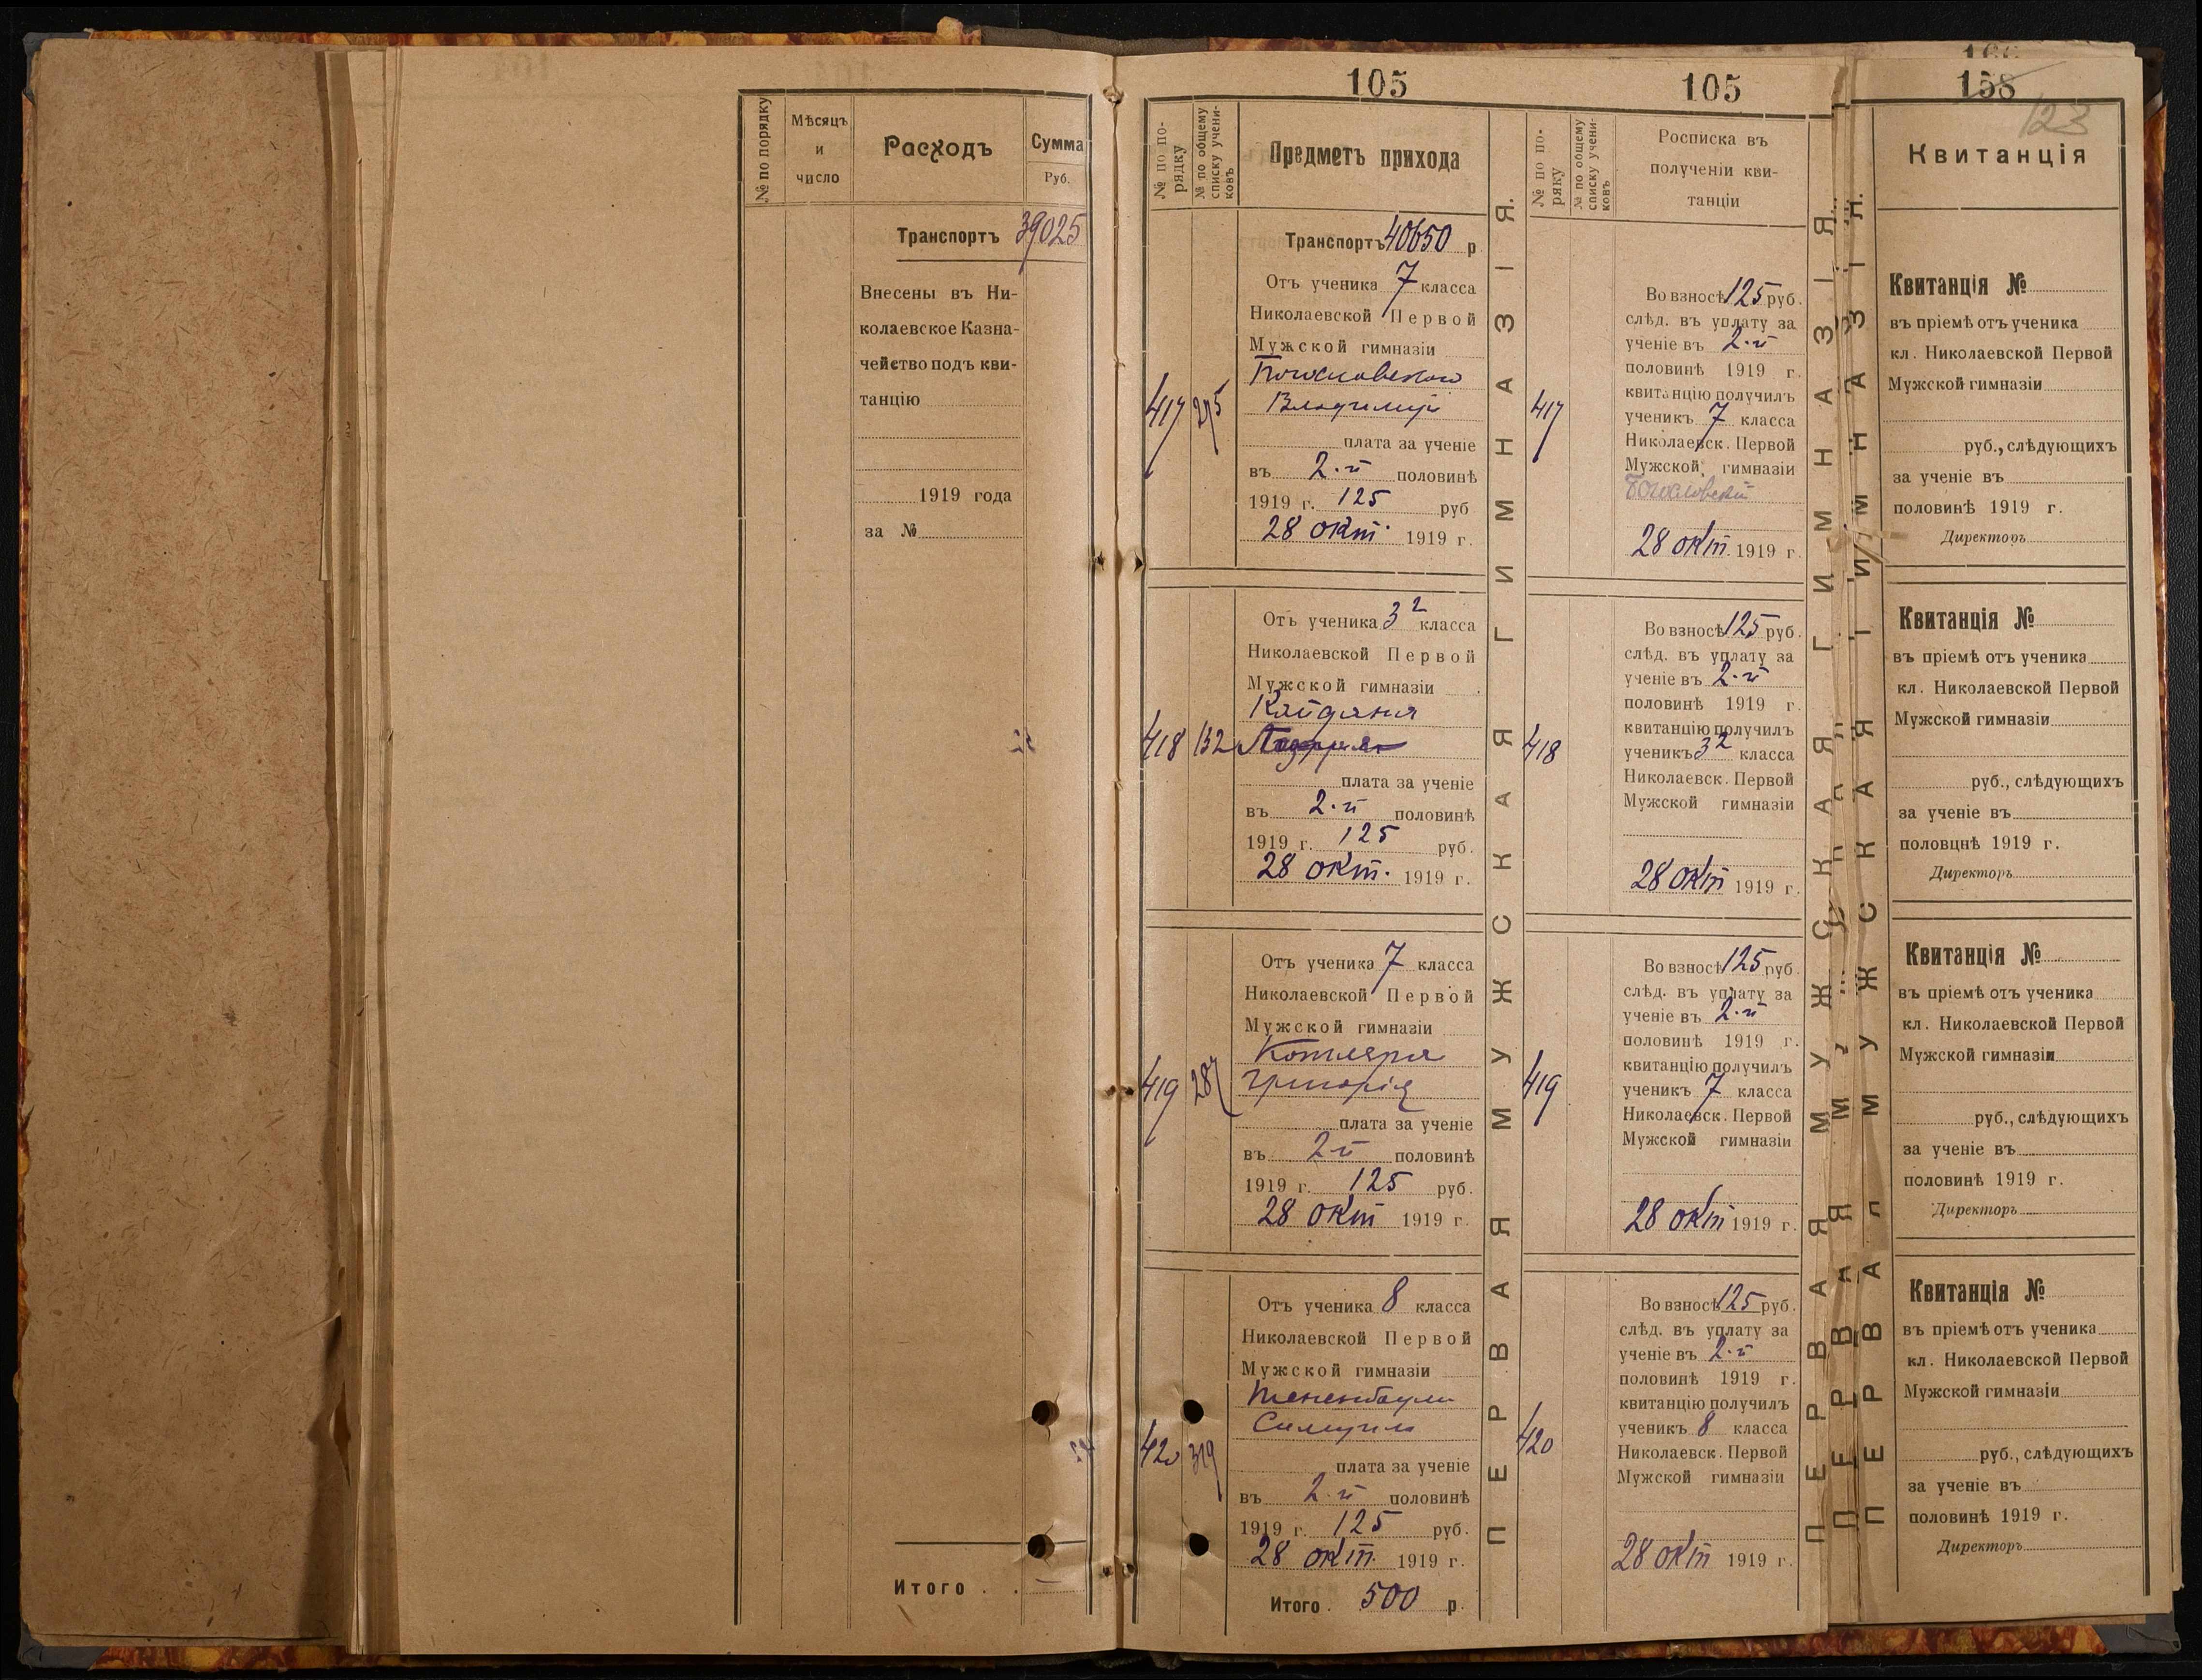 № по порядку
Мѣсяцъ
и
число
Расходъ
Сумма
Руб.
Транспортъ 39025
Внесены въ Ни-
колаевское Казна-
чейство подъ кви-
танцію
1919 года
за №
Итого .
105
№ по по-
рядку
№ по общему
списку учени-
ковъ
Предметъ прихода
Транспортъ 40650 р
417
275
Отъ ученика 7 класса
Николаевской Первой
Мужской гимназіи
Богословскаго
Владимира
плата за ученіе
въ 2-й половинѣ
1919 г. 125 руб
28 окт. 1919 г.
418
132
Отъ ученика 3² класса
Николаевской Первой
Мужской гимназіи
Кайдана
плата за ученіе
въ 2-й половинѣ
1919 г. 125 руб.
28 окт. 1919 г.
419
287
Отъ ученика 7 класса
Николаевской Первой
Мужской гимназіи
Котляра
Григорія
плата за ученіе
въ 2й половинѣ
1919 г. 125 руб.
28 окт 1919 г.
420
319
Отъ ученика 8 класса
Николаевской Первой
Мужской гимназіи
Тененбаума
Самуила
плата за ученіе
въ 2-й половинѣ
1919 г. 125 руб.
28 окт. 1919 г.
Итого . 500 р.
ПЕРВАЯ МУЖСКАЯ ГИМНАЗІЯ.
105
№ по по-
ряку
№ по общему
списку учени-
ковъ
Росписка въ
полученіи кви-
танціи
417
Во взносѣ 125 руб.
слѣд. въ уплату за
ученіе въ 2-й
половинѣ 1919 г.
квитанцію получилъ
ученикъ 7 класса
Николаевск. Первой
Мужской гимназіи
Богословскій
28 окт. 1919 г.
418
Во взносѣ 125 руб.
слѣд. въ уплату за
ученіе въ 2-й
половинѣ 1919 г.
квитанцію получилъ
ученикъ 3² класса
Николаевск. Первой
Мужской гимназіи
28 окт 1919 г.
419
Во взносѣ 125 руб
слѣд. въ уплату за
ученіе въ 2-й
половинѣ 1919 г.
квитанцію получилъ
ученикъ 7 класса
Николаевск. Первой
Мужской гимназіи
28 окт 1919 г.
420
Во взносѣ 125 руб.
слѣд. въ уплату за
ученіе въ 2-й
половинѣ 1919 г.
квитанцію получилъ
ученикъ 8 класса
Николаевск. Первой
Мужской гимназіи
28 окт 1919 г.
ПЕРВАЯ МУЖСКАЯ ГИМНАЗІЯ.
158
123
Квитанція
Квитанція №
въ пріемѣ отъ ученика
кл. Николаевской Первой
Мужской гимназіи
руб., слѣдующихъ
за ученіе въ
половинѣ 1919 г.
Директоръ
Квитанція №
въ пріемѣ отъ ученика
кл. Николаевской Первой
Мужской гимназіи
руб., слѣдующихъ
за ученіе въ
половцнѣ 1919 г.
Директоръ
Квитанція №
въ пріемѣ отъ ученика
кл. Николаевской Первой
Мужской гимназіи
руб., слѣдующихъ
за ученіе въ
половинѣ 1919 г.
Директоръ
Квитанція №
въ пріемѣ отъ ученика
кл. Николаевской Первой
Мужской гимназіи
руб., слѣдующихъ
за ученіе въ
половинѣ 1919 г.
Директоръ